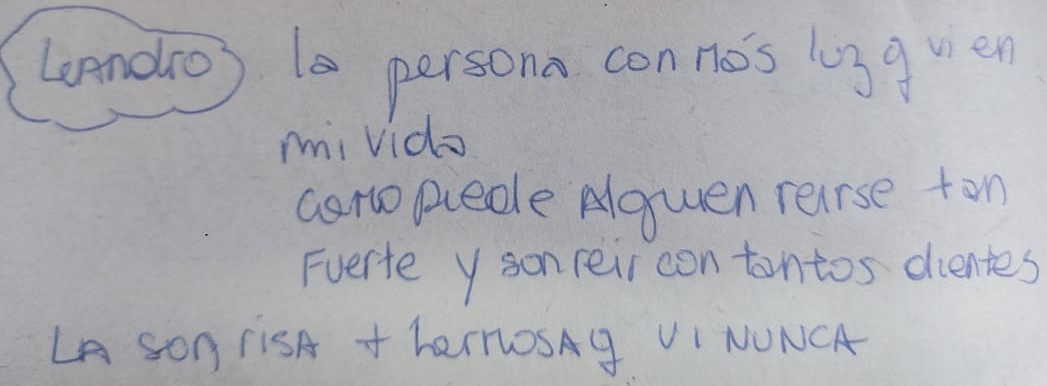 Leandro la persona con más luz q vi en
mi vida
como puede Alguien reirse tan
Fuerte y sonreir con tantos dientes
LA sonrisA + hermosA q VI NUNCA